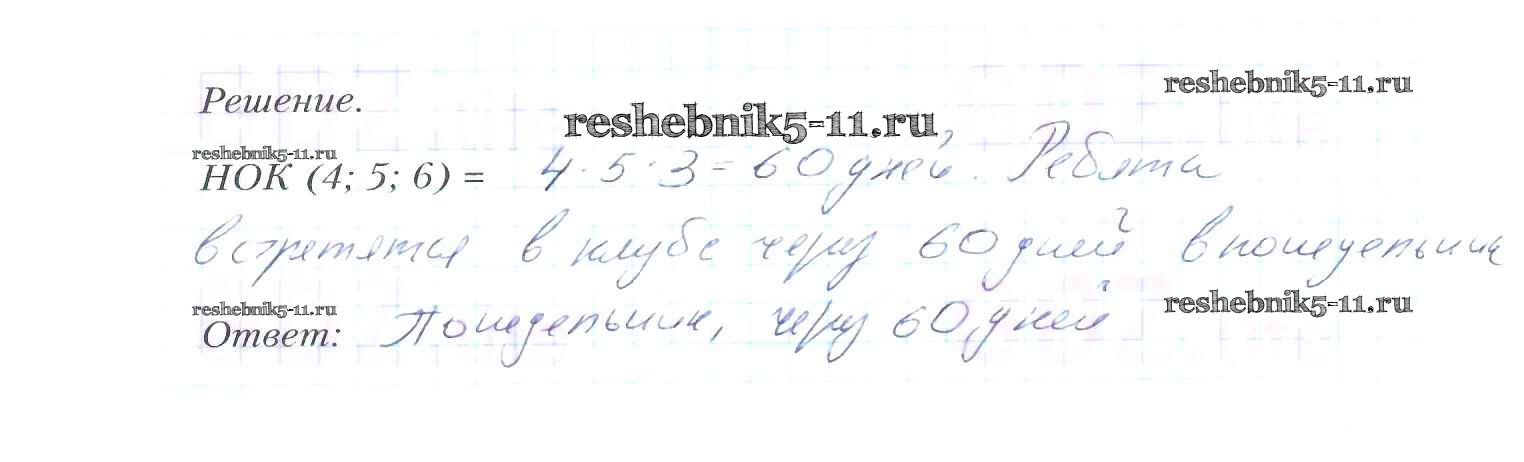 reshebnik5-11.ru
Решение.
reshebnik5-11.ru
reshebnik5-11.ru
НОК (4; 5; 6) = 4·5·3=60 дней. Ребята
встретятся в клубе через 60 дней в понедельник
reshebnik5-11.ru
reshebnik5-11.ru
Ответ: Понедельник, через 60 дней